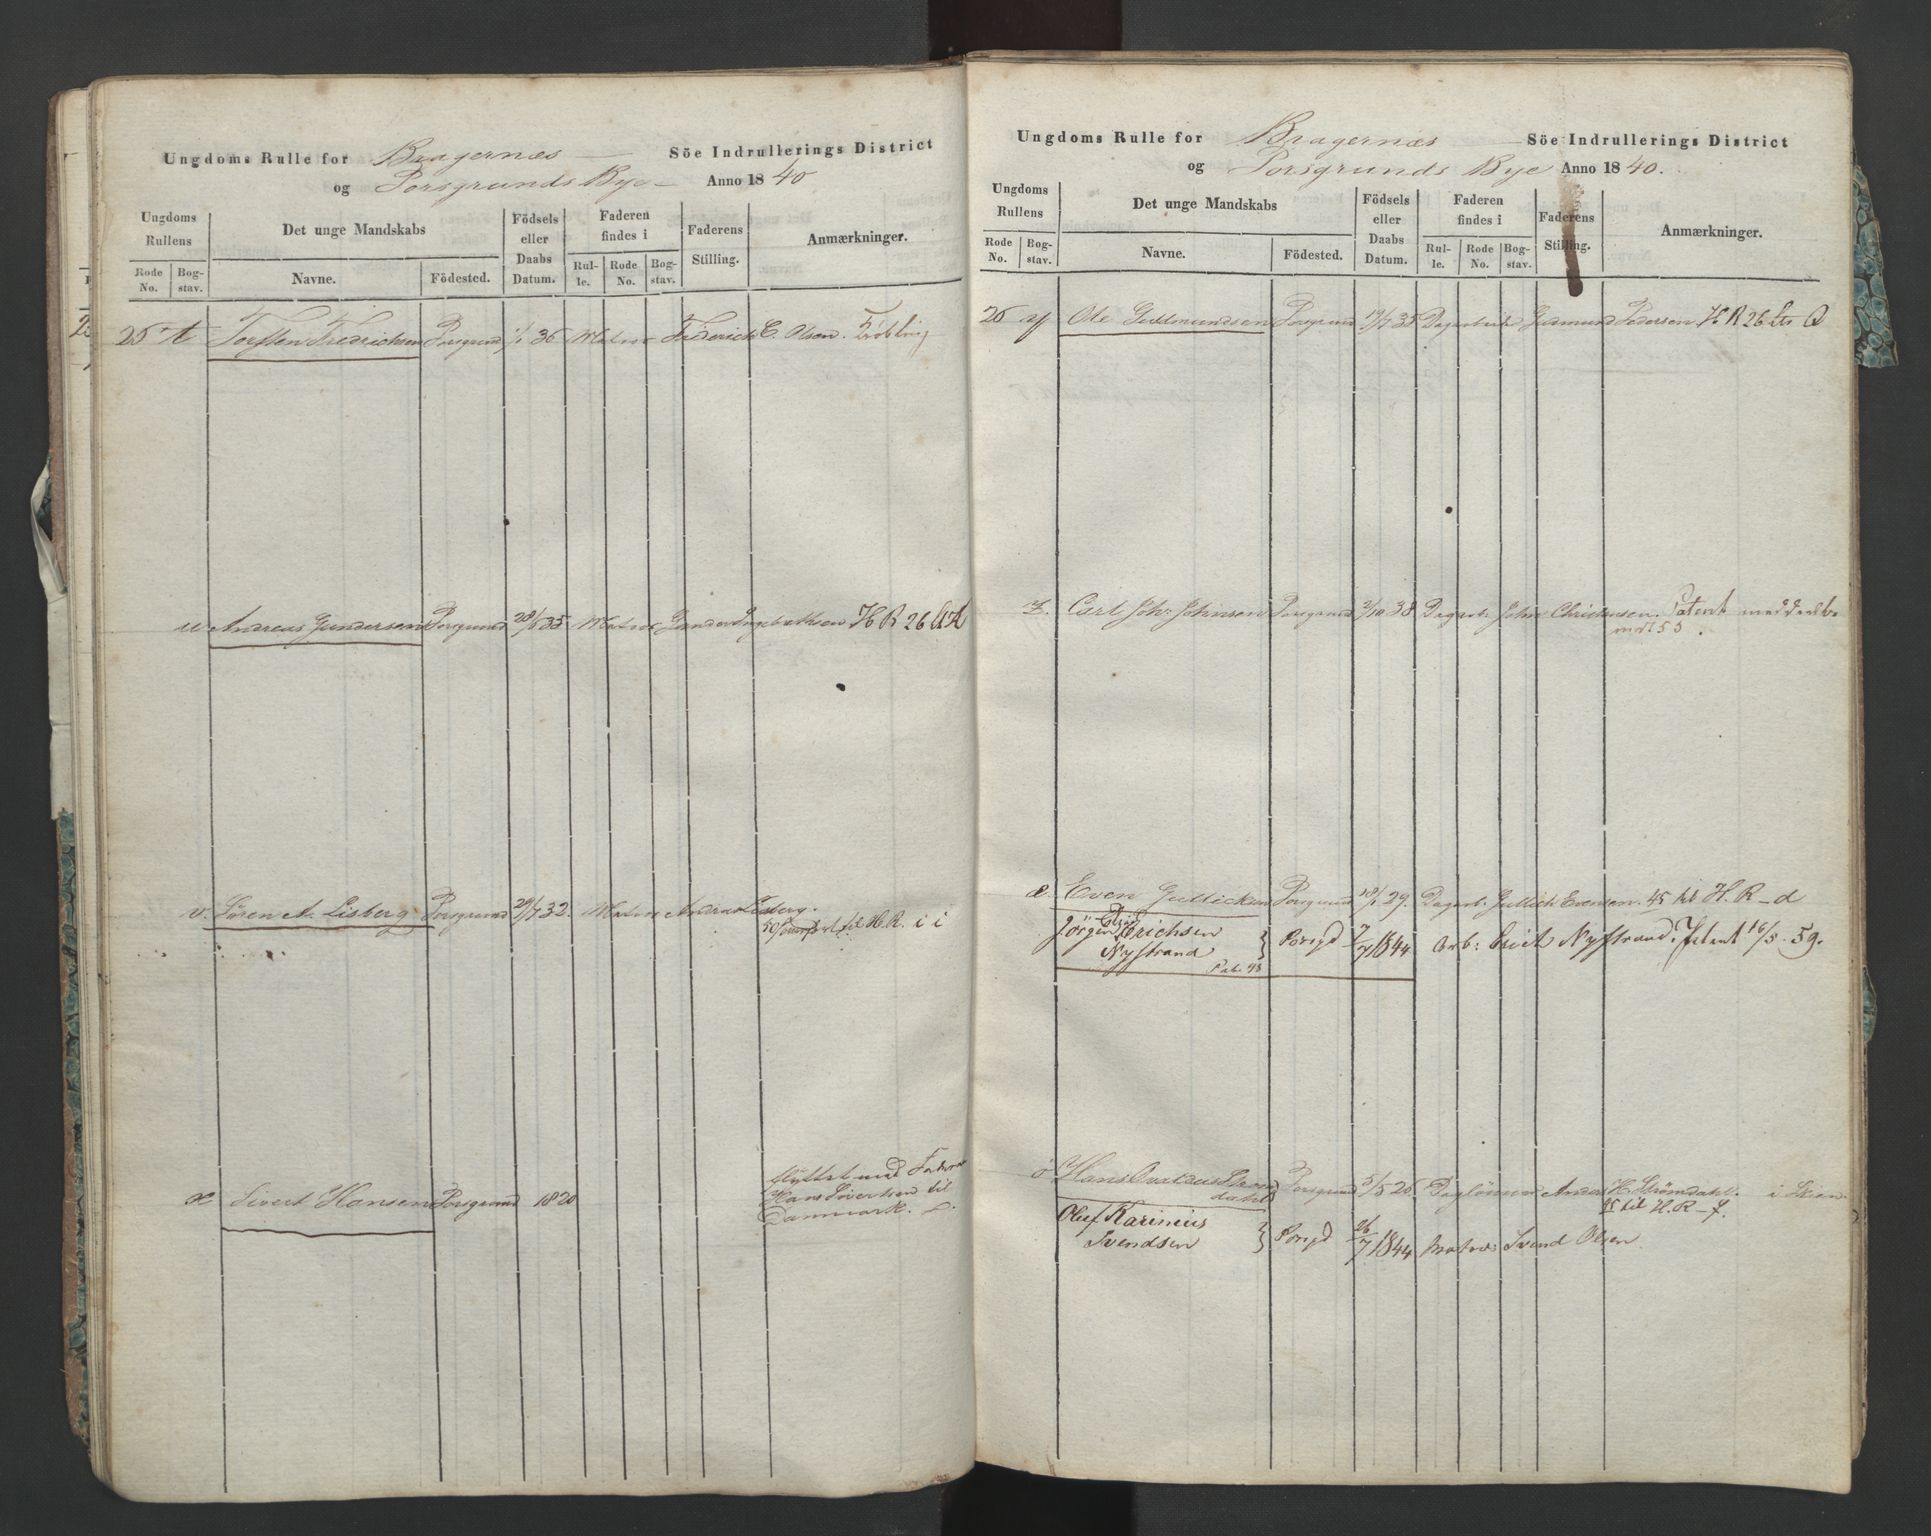 Ungdoms Rulle for Bragernæs Söe Indrullerings District
og Porsgrunds Bye Anno 1840
Ungdoms Rullens
Det unge Mandskabs
Födsels eller Daabs Datum.
Faderen findes i
Faderens Stilling.
Anmærkninger.
Rode No.
Bogstav.
Navne.
Födested.
Rulle.
Rode No.
Bogstav.
26 t Torsten Fredrichsen Porsgrund 1/1 36 Matros Frederich C. Olsen.
u Andreas Gundersen Porsgrund 28/5 35 Matros Gunder Ingebrethsen H R 26 Lit A
v. Sören A. Lisberg Porsgrund 29/7 32. Matros Andreas Lisberg.
50 til H. R. i i
x Sivert Hansen Porsgrund 1820 flyttet med Faderen
Hans Sivertsen til
Danmark.
Ungdoms Rulle for Bragernæs Söe Indrullerings District
og Porsgrunds Bye Anno 1840.
Ungdoms Rullens
Det unge Mandskabs
Födsels eller Daabs Datum.
Faderen findes i
Faderens Stilling.
Anmærkninger.
Rode No.
Bogstav.
Navne.
Födested.
Rulle.
Rode No.
Bogstav.
26 y Ole Gudmundsen Porsgrund 19/7 35 Dagarbeid Gudmund Pedersen H R 26 Litr Q
z. Carl Joh: Johnsen Porsgrund 2/10 38 Dagarb: John Christensen. Patent meddeelt
53.
æ Even Gullicksen Porsgrund 18/1 29. Dagarb: Gullich Evensen. 45 til H. R - d
Jörgen Erichsen
Nystrand } Porsgd 7/7 1844 Arb: Erich Nystrand. Patent 16/5. 59.
Pat. 48
ö Hans Strom
dahl Porsgrund 5/5 26 Daglönner Anders H. Strömdahl. i Skien.
45 til H. R - f.
Oluf Karinius
Svendsen } Porsgd 26/7 1844 Matros: Svend Olsen